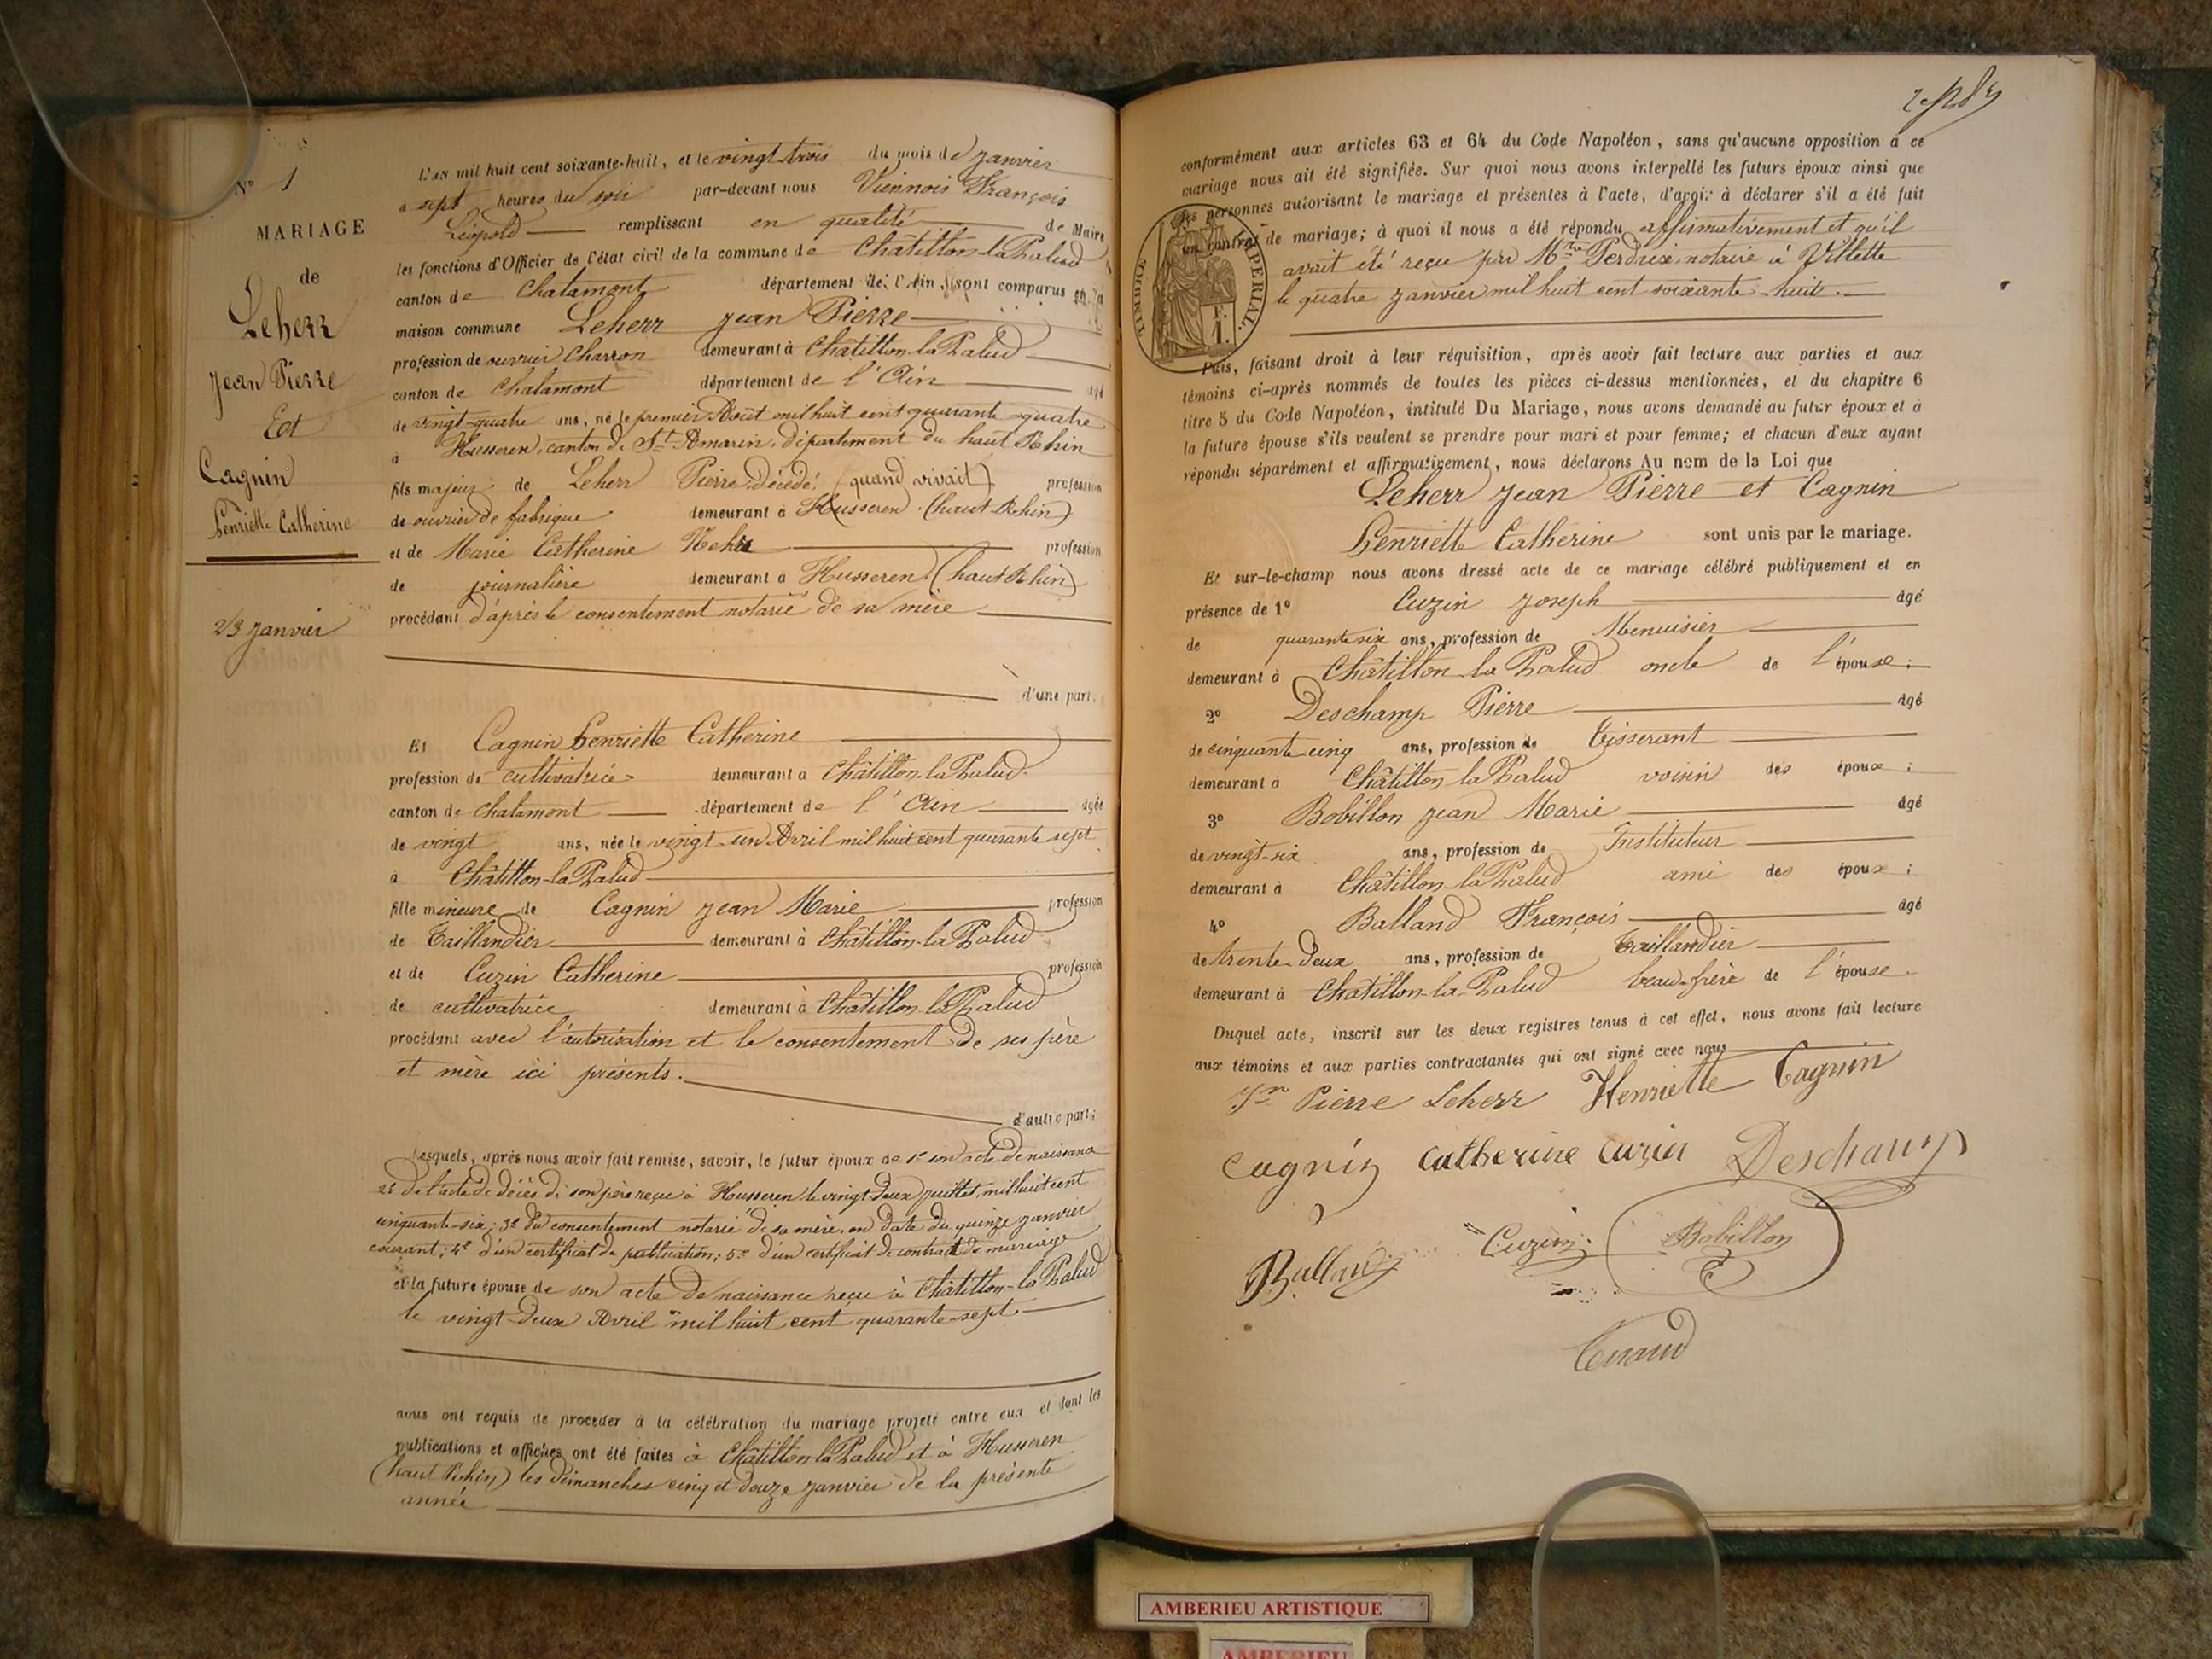 N° 1
MARIAGE
de
Leherr
Jean Pierre
Et
Cagnin
Henriette Catherine
23 Janvier
L'AN mil huit cent soixante-huit, et le vingt trois du mois de Janvier
à sept heures du soir par-devant nous Viennois François
Léopold remplissant en qualité de Maire
les fonctions d'Officier de l'état civil de la commune de Châtillon-la-Palud
canton de Chalamont département de l'Ain, sont comparus en la
maison commune Leherr Jean Pierre
profession de ouvrier Charron demeurant à Châtillon-la-Palud
canton de Chalamont département de l'Ain âgé
de vingt-quatre ans, né le premier Août mil huit cent quarante quatre
à Husseren, canton de St Amarin, département du haut Rhin
fils majeur de Leherr Pierre décédé (quand vivait) profession
de ouvrier de fabrique demeurant à Husseren (haut Rhin)
et de Marie Catherine profession
de journalière demeurant à Husseren (haut Rhin)
procédant d'après le consentement notarié de sa mère
d'une part.
Et Cagnin Henriette Catherine
profession de cultivatrice demeurant à Châtillon-la-Palud
canton de Chalamont département de l'Ain âgée
de vingt ans, née le vingt-un Avril mil huit cent quarante sept
à Châtillon-la-Palud
fille mineure de Cagnin Jean Marie profession
de Taillandier demeurant à Châtillon-la-Palud
et de Cuzin Catherine profession
de cultivatrice demeurant à Châtillon-la-Palud
procédant avec l'autorisation et le consentement de ses père
et mère ici présents.
d'autre part;
Lesquels, après nous avoir fait remise, savoir, le futur époux de 1° son acte de naissance
2° de l'acte de décès de son père reçu à Husseren le vingt-deux Juillet mil huit cent
cinquante-six; 3° du consentement notarié de sa mère, en date du quinze Janvier
courant; 4° d'un certificat de publication; 5° d'un certificat de contrat de mariage
et la future épouse de son acte de naissance reçu à Châtillon-la-Palud
le vingt-deux Avril mil huit cent quarante-sept.
nous ont requis de procéder à la célébration du mariage projeté entre eux et dont les
publications et affiches ont été faites à Châtillon-la-Palud et à Husseren
(haut Rhin) les dimanches cinq et douze Janvier de la présente
année
conformément aux articles 63 et 64 du Code Napoléon, sans qu'aucune opposition à ce
mariage nous ait été signifiée. Sur quoi nous avons interpellé les futurs époux ainsi que
les personnes autorisant le mariage et présentes à l'acte, d'avoir à déclarer s'il a été fait
un contrat de mariage; à quoi il nous a été répondu affirmativement et qu'il
avait été reçu par Mtre Perdrix notaire à Villette
le quatre Janvier mil huit cent soixante-huit.
TIMBRE IMPERIAL.
F.
1.
Puis, faisant droit à leur réquisition, après avoir fait lecture aux parties et aux
témoins ci-après nommés de toutes les pièces ci-dessus mentionnées, et du chapitre 6
titre 5 du Code Napoléon, intitulé Du Mariage, nous avons demandé au futur époux et à
la future épouse s'ils veulent se prendre pour mari et pour femme; et chacun d'eux ayant
répondu séparément et affirmativement, nous déclarons Au nom de la Loi que
Leherr Jean Pierre et Cagnin
Henriette Catherine sont unis par le mariage.
Et sur-le-champ nous avons dressé acte de ce mariage célébré publiquement et en
présence de 1° Cuzin Joseph âgé
de quarante six ans, profession de Menuisier
demeurant à Châtillon-la-Palud oncle de l'épouse;
2° Deschamp Pierre âgé
de cinquante cinq ans, profession de Tisserant
demeurant à Châtillon la Palud voisin des époux;
3° Bobillon Jean Marie âgé
de vingt-six ans, profession de Instituteur
demeurant à Châtillon-la-Palud ami des époux;
4° Balland François âgé
de trente-deux ans, profession de Taillandier
demeurant à Châtillon-la-Palud beau-frère de l'épouse.
Duquel acte, inscrit sur les deux registres tenus à cet effet, nous avons fait lecture
aux témoins et aux parties contractantes qui ont signé avec nous
Jn Pierre Leherr Henriette Cagnin
Cagnin Catherine Cuzin Deschamp
Balland Cuzin Bobillon
AMBERIEU ARTISTIQUE
AMBERIEU